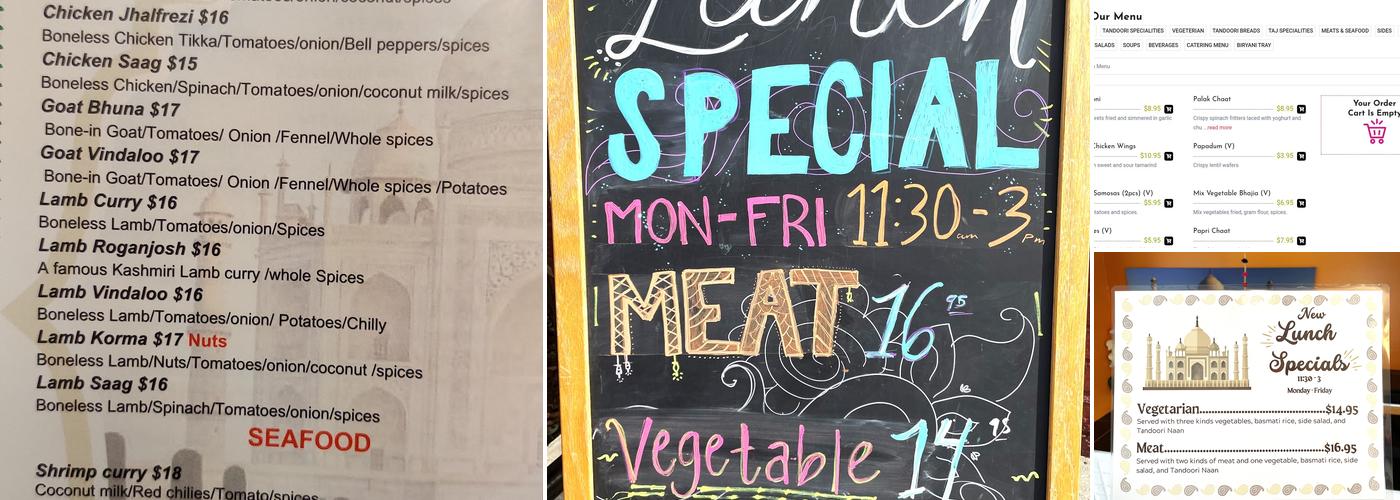 Chicken Jhalfrezi $16
Boneless Chicken Tikka/Tomatoes/onion/Bell peppers/spices
Chicken Saag $15
Boneless Chicken/Spinach/Tomatoes/onion/coconut milk/spices
Goat Bhuna $17
Bone-in Goat/Tomatoes/ Onion /Fennel/Whole spices
Goat Vindaloo $17
Bone-in Goat/Tomatoes/ Onion /Fennel/Whole spices /Potatoes
Lamb Curry $16
Boneless Lamb/Tomatoes/onion/Spices
Lamb Roganjosh $16
A famous Kashmiri Lamb curry /whole Spices
Lamb Vindaloo $16
Boneless Lamb/Tomatoes/onion/ Potatoes/Chilly
Lamb Korma $17 Nuts
Boneless Lamb/Nuts/Tomatoes/onion/coconut /spices
Lamb Saag $16
Boneless Lamb/Spinach/Tomatoes/onion/spices
SEAFOOD
Shrimp curry $18
Coconut milk/Red chilies/Tomato/spices
Lunch
SPECIAL
MON-FRI 11:30am-3pm
MEAT 16 95
Vegetable 14 95
Our Menu
TANDOORI SPECIALITIES VEGETERIAN TANDOORI BREADS TAJ SPECIALITIES MEATS & SEAFOOD SIDES
SALADS SOUPS BEVERAGES CATERING MENU BIRYANI TRAY
Menu
$8.95
fried and simmered in garlic
Chicken Wings
$10.95
sweet and sour tamarind
Samosas (2pcs) (V)
$5.95
and spices.
(V)
$5.95
Palak Chaat
$8.95
Crispy spinach fritters laced with yoghurt and
chu ...read more
Papadum (V)
$3.95
Crispy lentil wafers
Mix Vegetable Bhajia (V)
$6.95
Mix vegetables fried, gram flour, spices.
Papri Chaat
$7.95
Your Order
Cart Is Empty
New
Lunch
Specials
11:30-3
Monday-Friday
Vegetarian...............................$14.95
Served with three kinds vegetables, basmati rice, side salad, and
Tandoori Naan
Meat...........................................$16.95
Served with two kinds of meat and one vegetable, basmati rice, side
salad, and Tandoori Naan